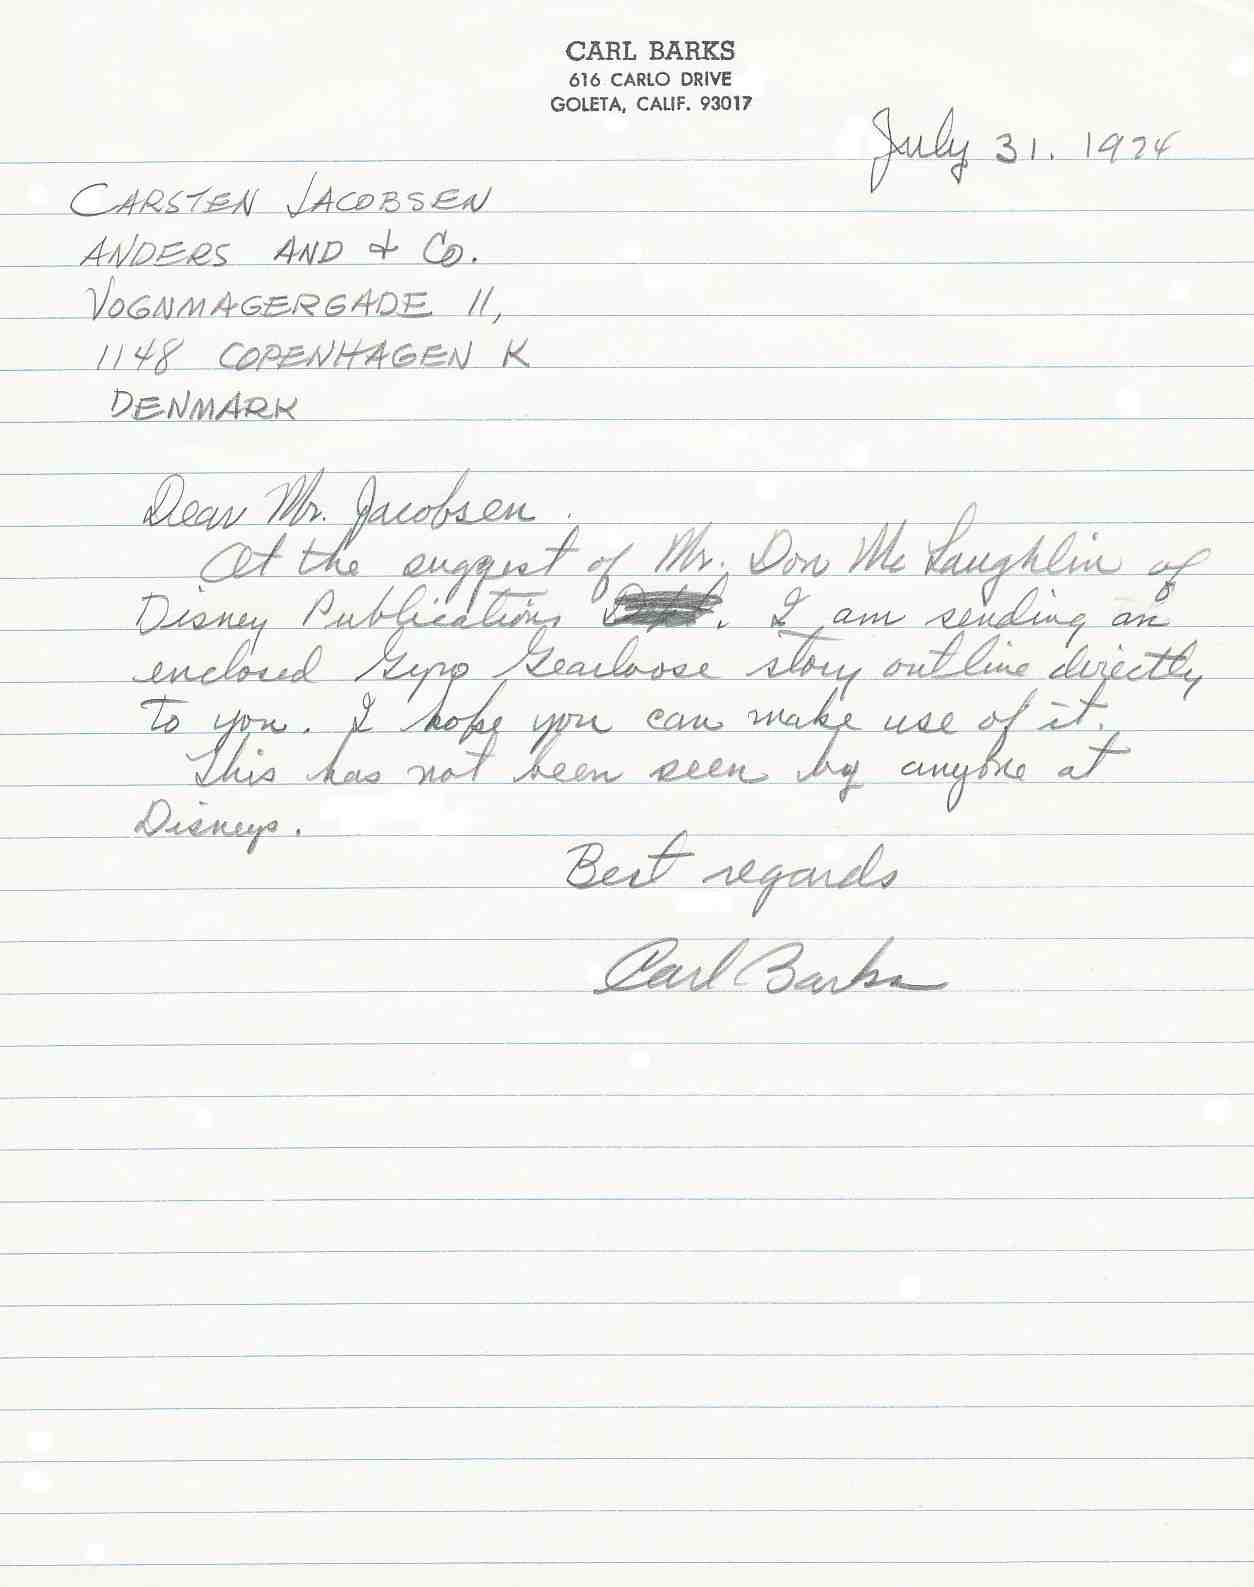 CARL BARKS
616 CARLO DRIVE
GOLETA, CALIF. 93017
July 31. 1974
CARSTEN JACOBSEN
ANDERS AND & Co.
VOGNMAGERGADE 11,
1148 COPENHAGEN K
DENMARK
Dear Mr. Jacobsen.
At the suggest of Mr. Don McLaughlin of
Disney Publications . I am sending an
enclosed Gyro Gearloose story outline directly
to you. I hope you can make use of it.
This has not been seen by anyone at
Disneys.
Best regards
Carl Barks